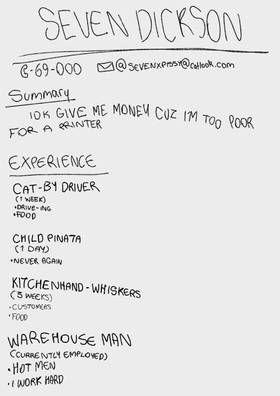 SEVEN DICKSON
6-69-000 @SEVENXPISSY@CATLOOK.COM
Summary
IDK GIVE ME MONEY CUZ I'M TOO POOR
FOR A PRINTER
EXPERIENCE
CAT-BY DRIVER
(1 WEEK)
•DRIVE-ING
•FOOD
CHILD PINATA
(1 DAY)
•NEVER AGAIN
KITCHENHAND-WHISKERS
(3 WEEKS)
•CUSTOMERS
•FOOD
WAREHOUSE MAN
(CURRENTLY EMPLOYED)
•HOT MEN
•I WORK HARD